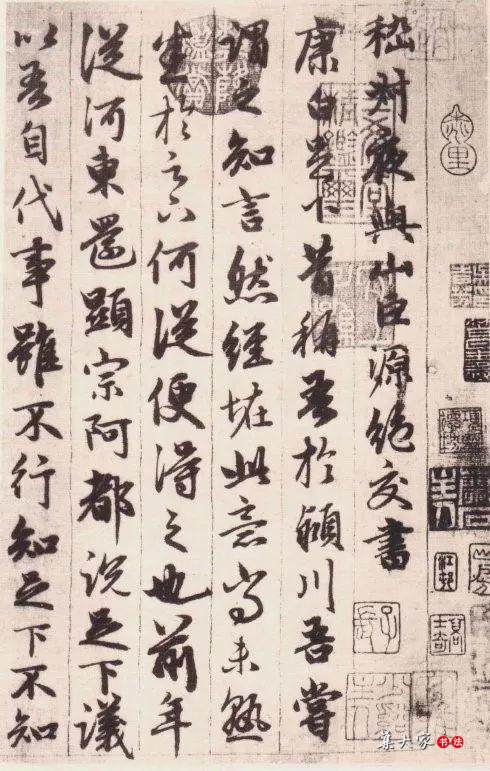 嵇叔夜與山巨源絶交書
康白足下昔稱吾於潁川吾嘗
謂之知言然經怪此意尚未熟
悉於足下何從便得之也前年
從河東還顯宗阿都説足下議
以吾自代事雖不行知足下不知
集大家书法